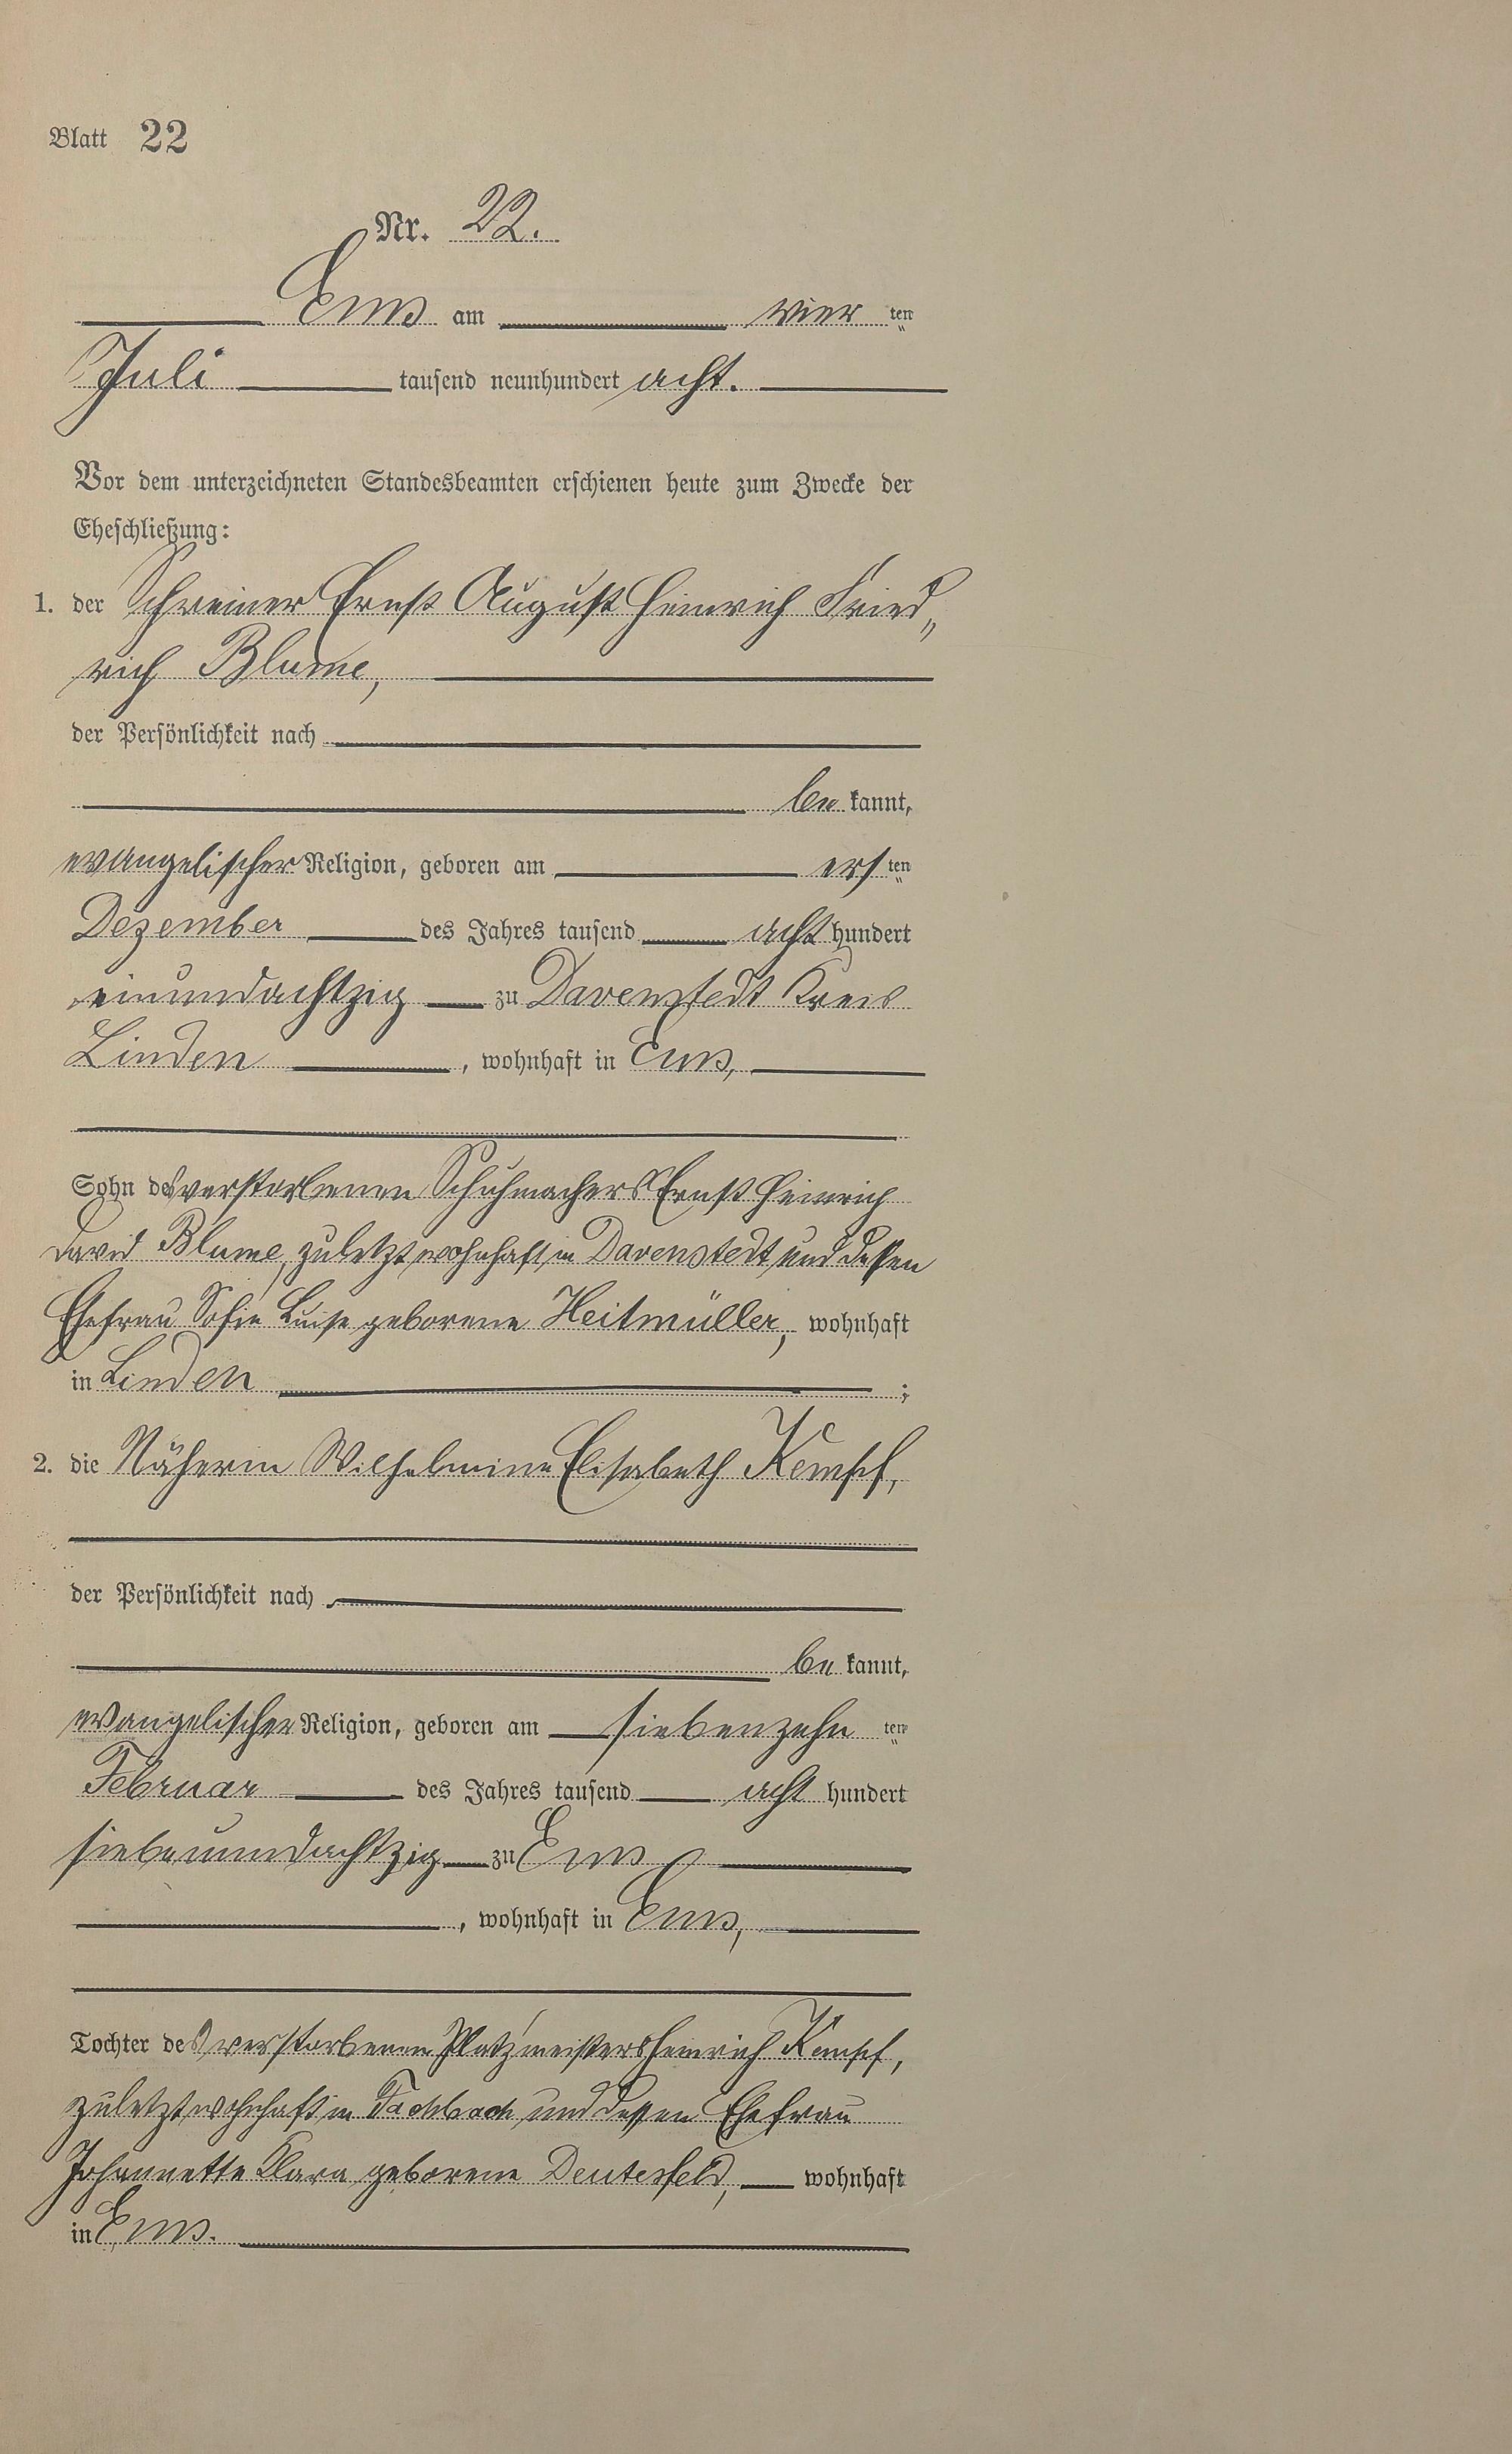 Blatt 22
Nr. 22.
Ems am vier ten
Juli tausend neunhundert acht.
Vor dem unterzeichneten Standesbeamten erschienen heute zum Zwecke der
Eheschließung:
1. der Schreiner Ernst August Heinrich Fried„
rich Blume,
der Persönlichkeit nach
be kannt,
evangelischer Religion, geboren am ers ten
Dezember des Jahres tausend acht hundert
einundachtzig zu Davenstedt Kreis
Linden, wohnhaft in Ems,
Sohn des verstorbenen Schuhmachers Ernst Heinrich
David Blume, zuletzt wohnhaft in Davenstedt und dessen
Ehefrau Sofie Luise geborene Heitmüller, wohnhaft
in Linden ;
2. die Näherin Wilhelmine Elisabeth Kempf,
der Persönlichkeit nach
be kannt,
evangelischer Religion, geboren am siebenzehn ten
Februar des Jahres tausend acht hundert
siebenundachtzig zu Ems
, wohnhaft in Ems,
Tochter des verstorbenen Platzmeisters Heinrich Kempf,
zuletzt wohnhaft in Fachbach und dessen Ehefrau
Johannette Klara geborene Deutesfeld, wohnhaft
in Ems.